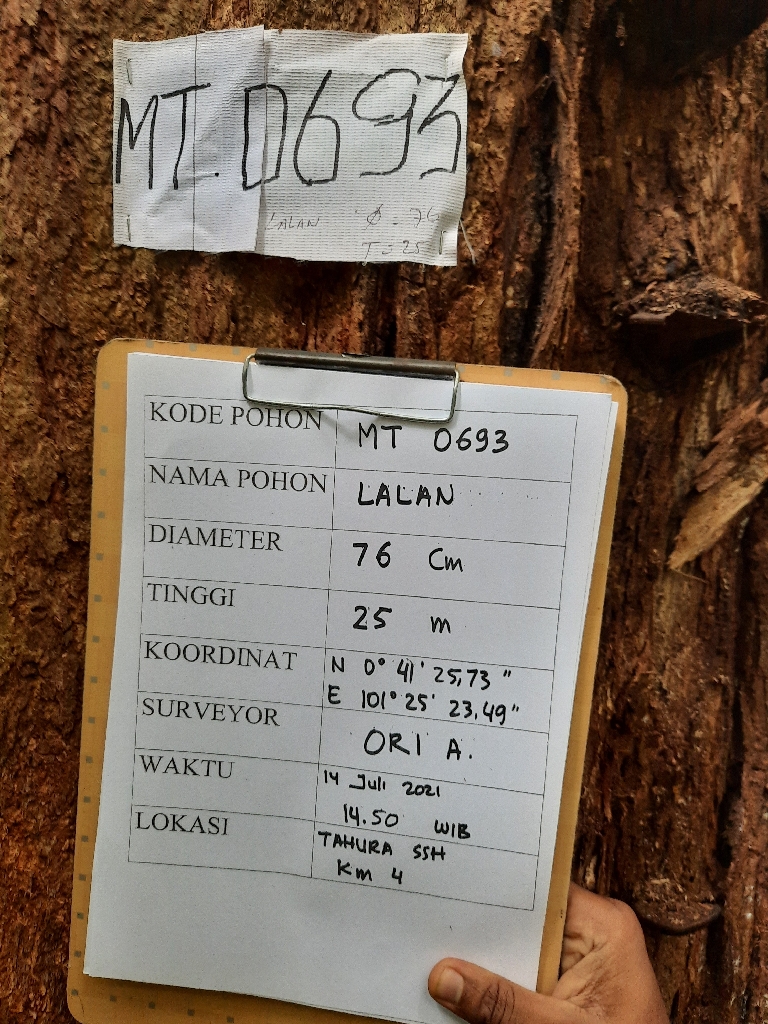 MT. 0693
LALAN Ø = 76
T = 25
KODE POHON MT 0693
NAMA POHON LALAN
DIAMETER 76 Cm
TINGGI 25 m
KOORDINAT N 0° 41' 25,73 "
E 101° 25' 23,49"
SURVEYOR ORI A.
WAKTU 14 Juli 2021
14.50 WIB
LOKASI TAHURA SSH
Km 4